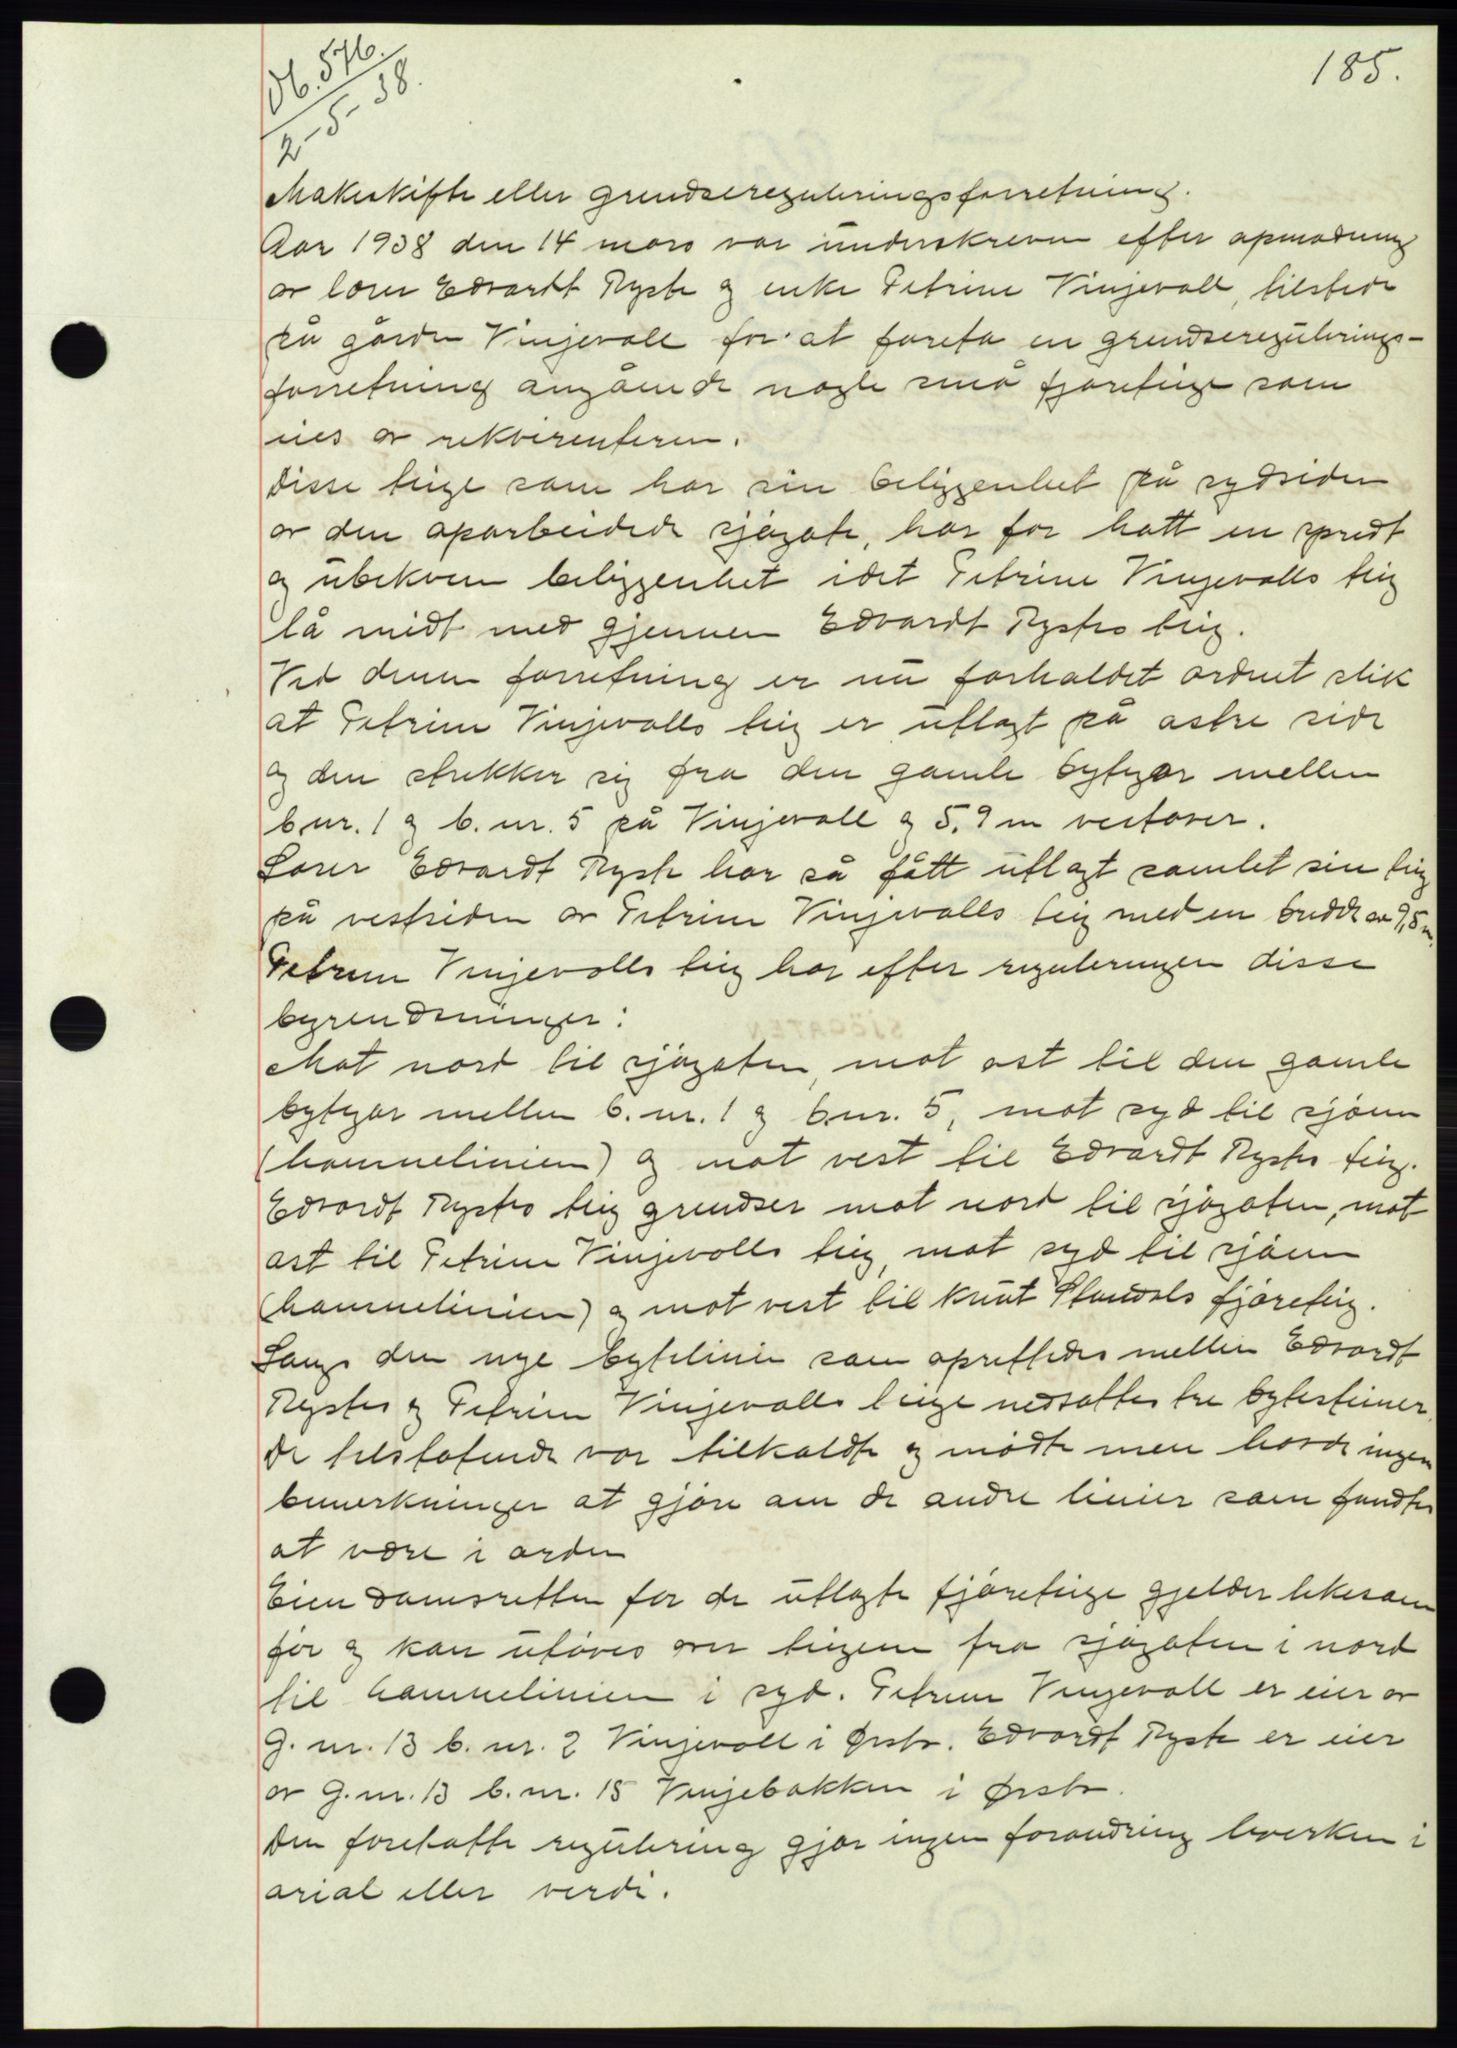 Db. 576.
2-5-38.
185.
Makeskifte eller grendsereguleringsforretning.
Aar 1938 den 14 mars var underskreven efter opmodning
av lærer Edvardt Ryste og enke Petrine Vinjevoll, tilstede
på gården Vinjevoll for at foreta en grendseregulerings-
forretning angående nogle små fjæreteige som
eies av rekvirenteren.
Disse teige som har sin beliggenhet på sydsiden
av den oparbeidede sjøgate, har før hatt en spredt
og ubekvem beliggenhet idet Petrine Vinjevolls teig
lå midt med gjennem Edvardt Rystes teig.
Ved denne forretning er nu forholdet ordnet slik
at Petrine Vinjevolls teig er utlagt på østre side
og den strekker sig fra den gamle bytegar mellem
b.nr. 1 og b. nr. 5 på Vinjevoll og 5.9 m vestover.
Lærer Edvardt Ryste har så fått utlagt samlet sin teig
på vestsiden av Petrine Vinjevolls teig med en bredde av 9,5 m.
Petrine Vinjevolls teig har efter reguleringen disse
begrendsninger:
Mot nord til sjøgaten, mot øst til den gamle
bytegar mellem b. nr. 1 og b.nr. 5, mot syd til sjøen
(hamnelinien) og mot vest til Edvardt Rystes teig.
Edvardt Rystes teig grendser mot nord til sjøgaten, mot
øst til Petrine Vinjevolls teig, mot syd til sjøen
(hamnelinien) og mot vest til Knut Standals fjæreteig.
Langs den nye bytelinie som oprettedes mellem Edvardt
Rystes og Petrine Vinjevolls teige nedsattes tre bytesteiner.
De tilstøtende var tilkaldte og mødte men havde ingen
bemerkninger at gjøre om de andre linier som fandtes
at være i orden
Eiendomsretten for de utlagte fjæreteige gjelder likesom
før og kan utøves over teigene fra sjøgaten i nord
til hamnelinien i syd. Petrine Vinjevoll er eier av
G. nr. 13 b. nr. 2 Vinjevoll i Ørsta. Edvardt Ryste er eier
av G. nr. 13 b. nr. 15 Vinjebakken i Ørsta.
Den foretatte regulering gjør ingen forandring hverken i
arial eller verdi.